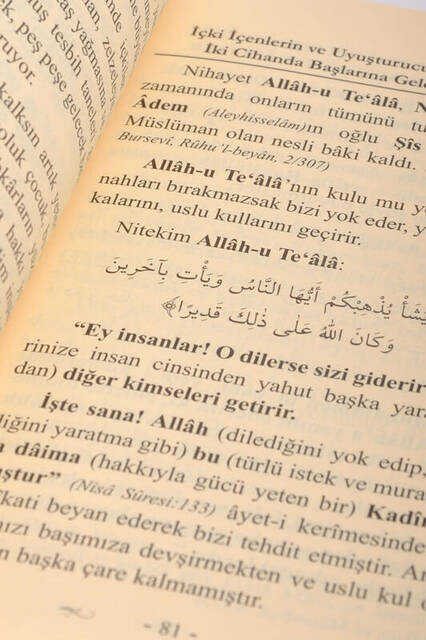 kalksın artık y
oluk çocuk
kârların
a hakkı
İçki İçenlerin ve Uyuşturucu
İki Cihanda Başlarına Gele
Nihayet Allâh-u Te‘âlâ, N
zamanında onların tümünü tu
Âdem (Aleyhisselâm)ın oğlu Şîs
Müslüman olan nesli bâki kaldı.
Bursevî, Rûhu'l-beyân, 2/307)
Allâh-u Te‘âlâ'nın kulu mu y
nahları bırakmazsak bizi yok eder, y
kalarını, uslu kullarını geçirir.
Nitekim Allâh-u Te‘âlâ:
يَشَأْ يُذْهِبْكُمْ أَيُّهَا النَّاسُ وَيَأْتِ بِآخَرِينَ
وَكَانَ اللهُ عَلَى ذٰلِكَ قَدِيرًا﴾
“Ey insanlar! O dilerse sizi giderir
rinize insan cinsinden yahut başka yara
dan) diğer kimseleri getirir.
İşte sana! Allâh (dilediğini yok edip,
diğini yaratma gibi) bu (türlü istek ve mura
a dâima (hakkıyla gücü yeten bir) Kadîr
uştur” (Nisâ Sûresi:133) âyet-i kerîmesinde
kati beyan ederek bizi tehdit etmiştir. Ar
mızı başımıza devşirmekten ve uslu kul o
n başka çare kalmamıştır.
- 81 -